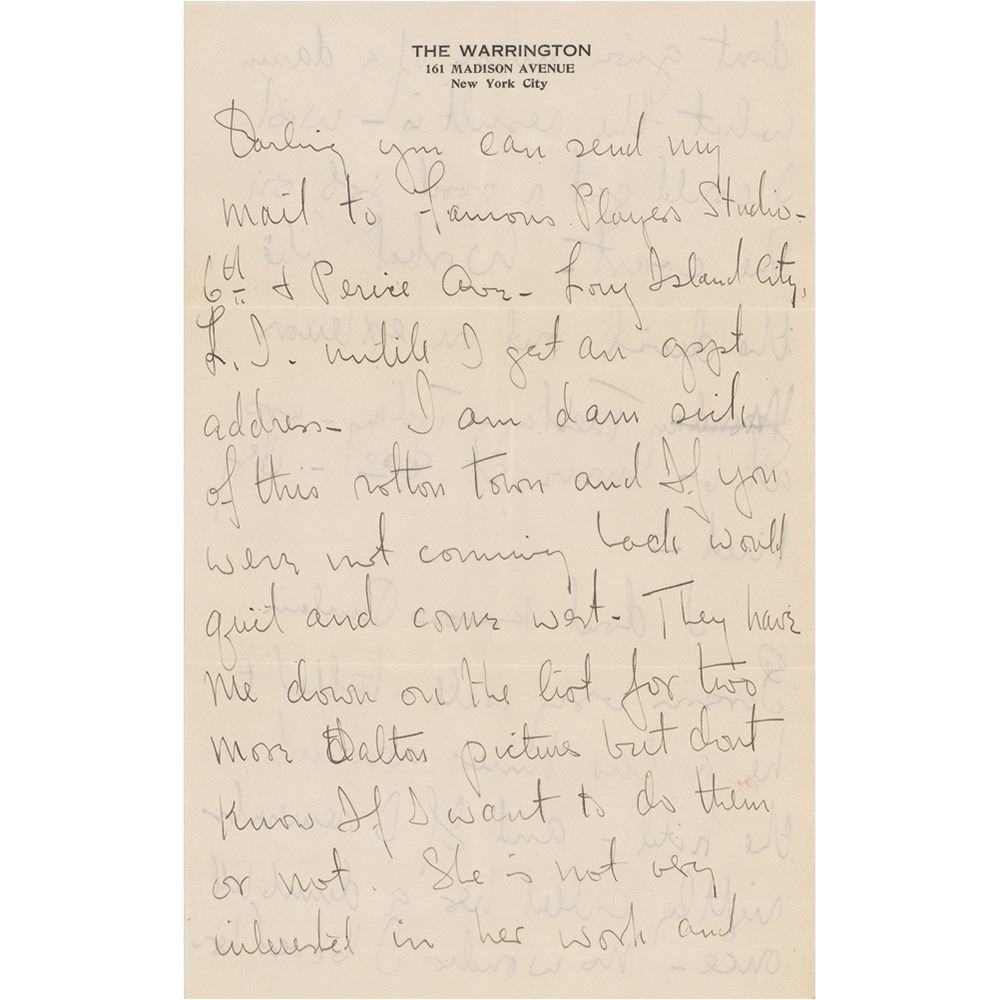 THE WARRINGTON
161 MADISON AVENUE
New York City
Darling you can send my
mail to Famous Players Studio-
6th & Perice Ave- Long Island City,
L. I. - untill I get an appt
address- I am dam sick
of this rotton town and If you
were not comming back would
quit and come west- They have
me down on the list for two
more Dalton pictures but dont
know If I want to do them
or not. She is not very
interested in her work and